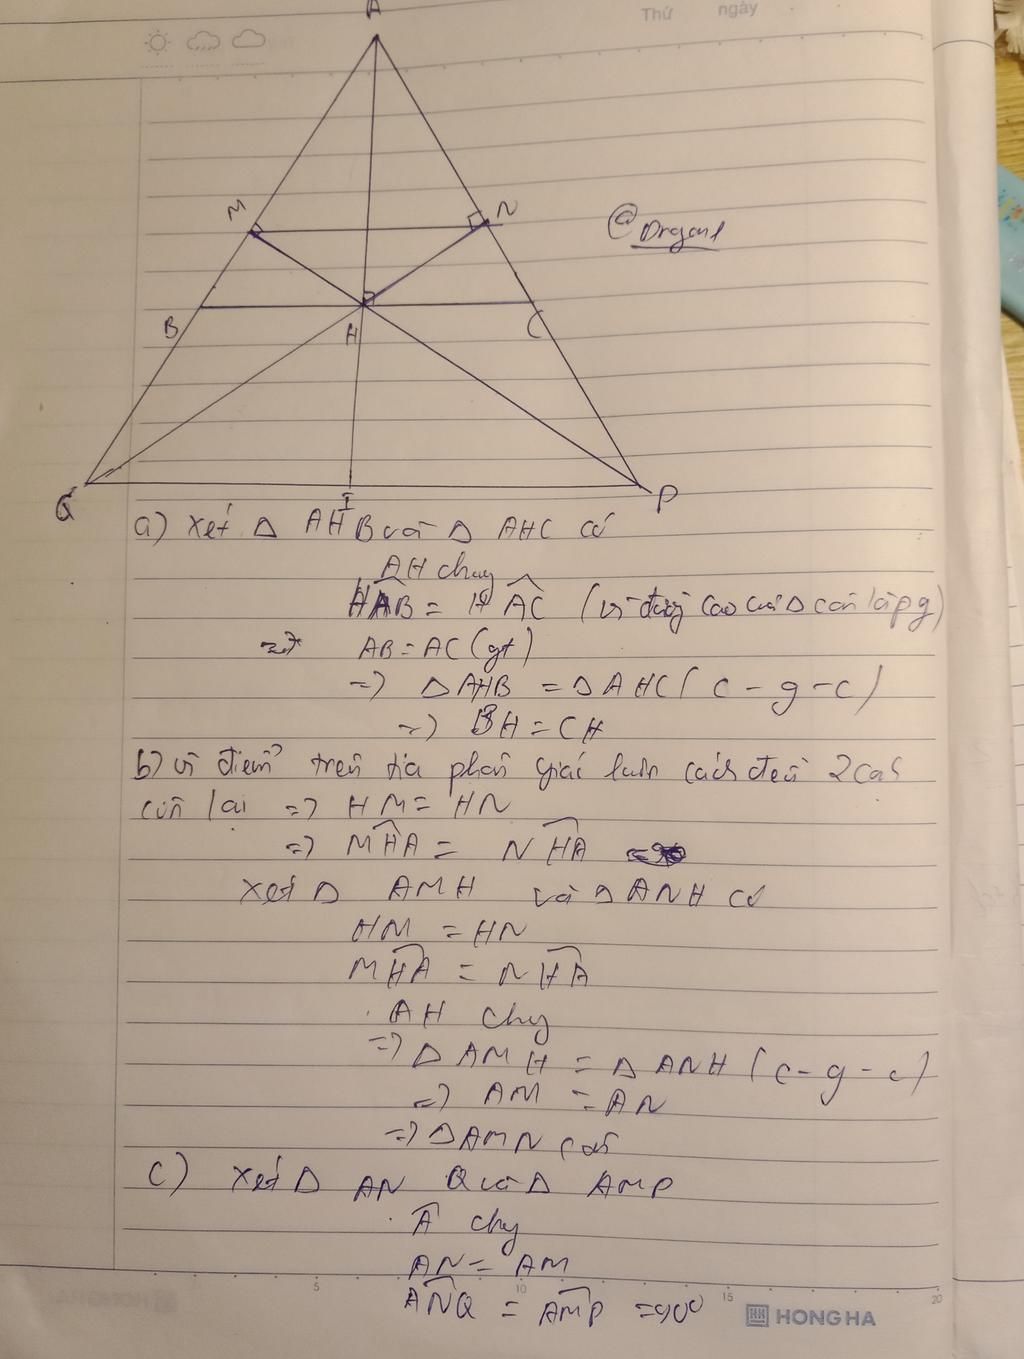 Thứ ngày
A
M
N
@Dragon1
B
H
C
Q
I
P
a) Xét Δ AHB và Δ AHC có
AH chung
HAB = HAC (vì đường cao của Δ cân là pg)
=> AB = AC (gt)
=> Δ AHB = Δ AHC (c - g - c)
=> BH = CH
b) vì điểm trên tia phân giác luôn cách đều 2 cạh
còn lại => HM = HN
=> MHA = NHA
Xét Δ AMH và Δ ANH có
HM = HN
MHA = NHA
AH chug
=> Δ AMH = Δ ANH (c - g - c)
=> AM = AN
=> Δ AMN cân
c) Xét Δ ANQ và Δ AMP
A chug
AN = AM
ANQ = AMP = 90°
5 10 15 20
HONG HA